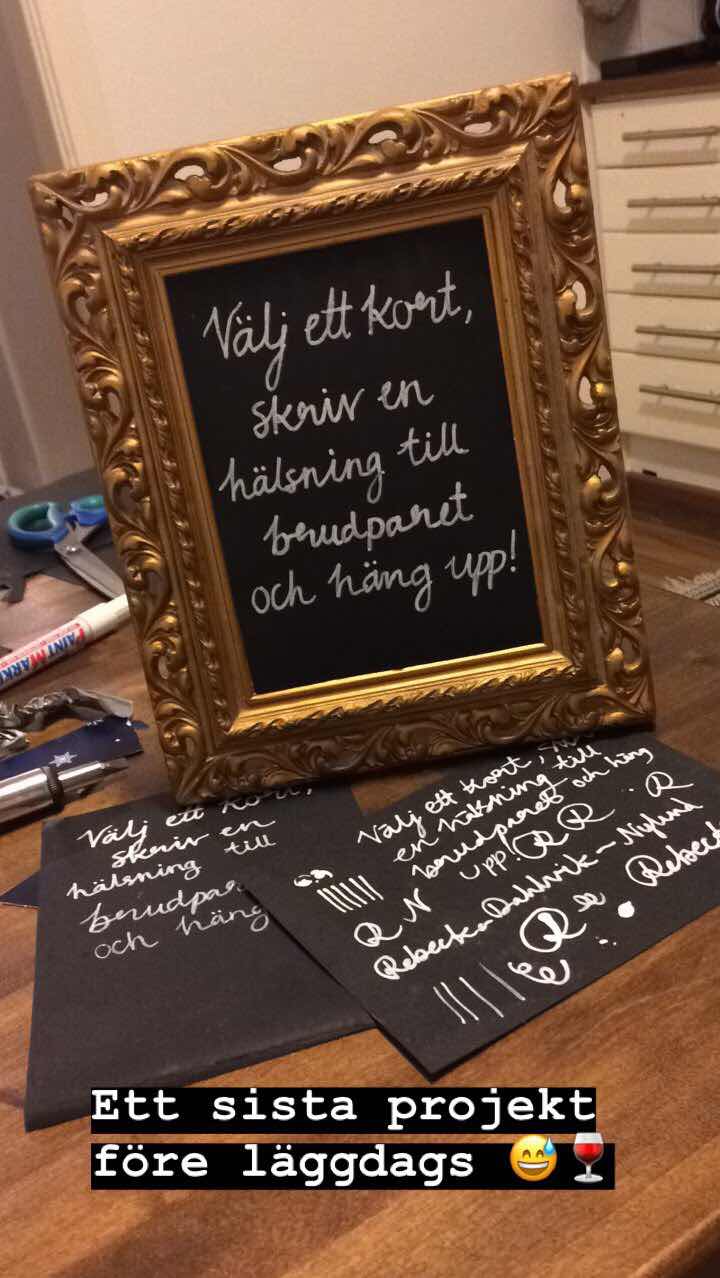 Välj ett kort,
skriv en
hälsning till
brudparet
och häng upp!
PAINT MARKE
Välj ett kort,
skriv en
hälsning till
brudpar
och häng
Välj ett kort,
en hälsning till
brudparet och häng
upp! R R . R
R N Rebecka Dahlvik-Nylund
R Rebeck
Ett sista projekt
före läggdags 😅🍷